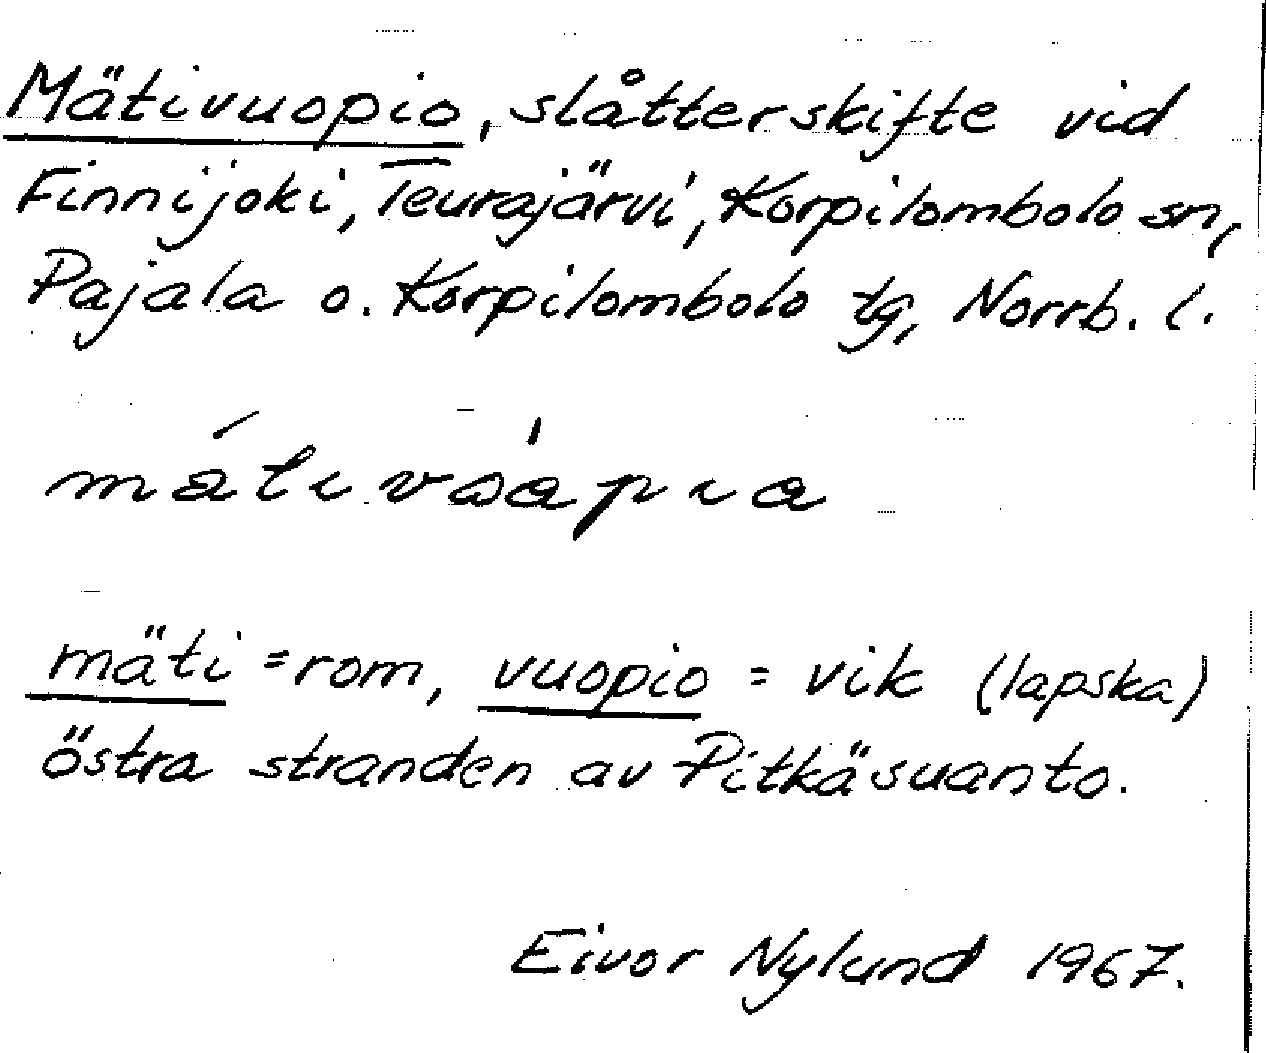 Mätivuopio, slåtterskifte vid
Finnijoki, Teurajärvi, Korpilombolo sn,
Pajala o. Korpilombolo tg, Norrb. l.
mäti = rom, vuopio = vik (lapska)
östra stranden av Pitkäsuanto.
Eivor Nylund 1967.